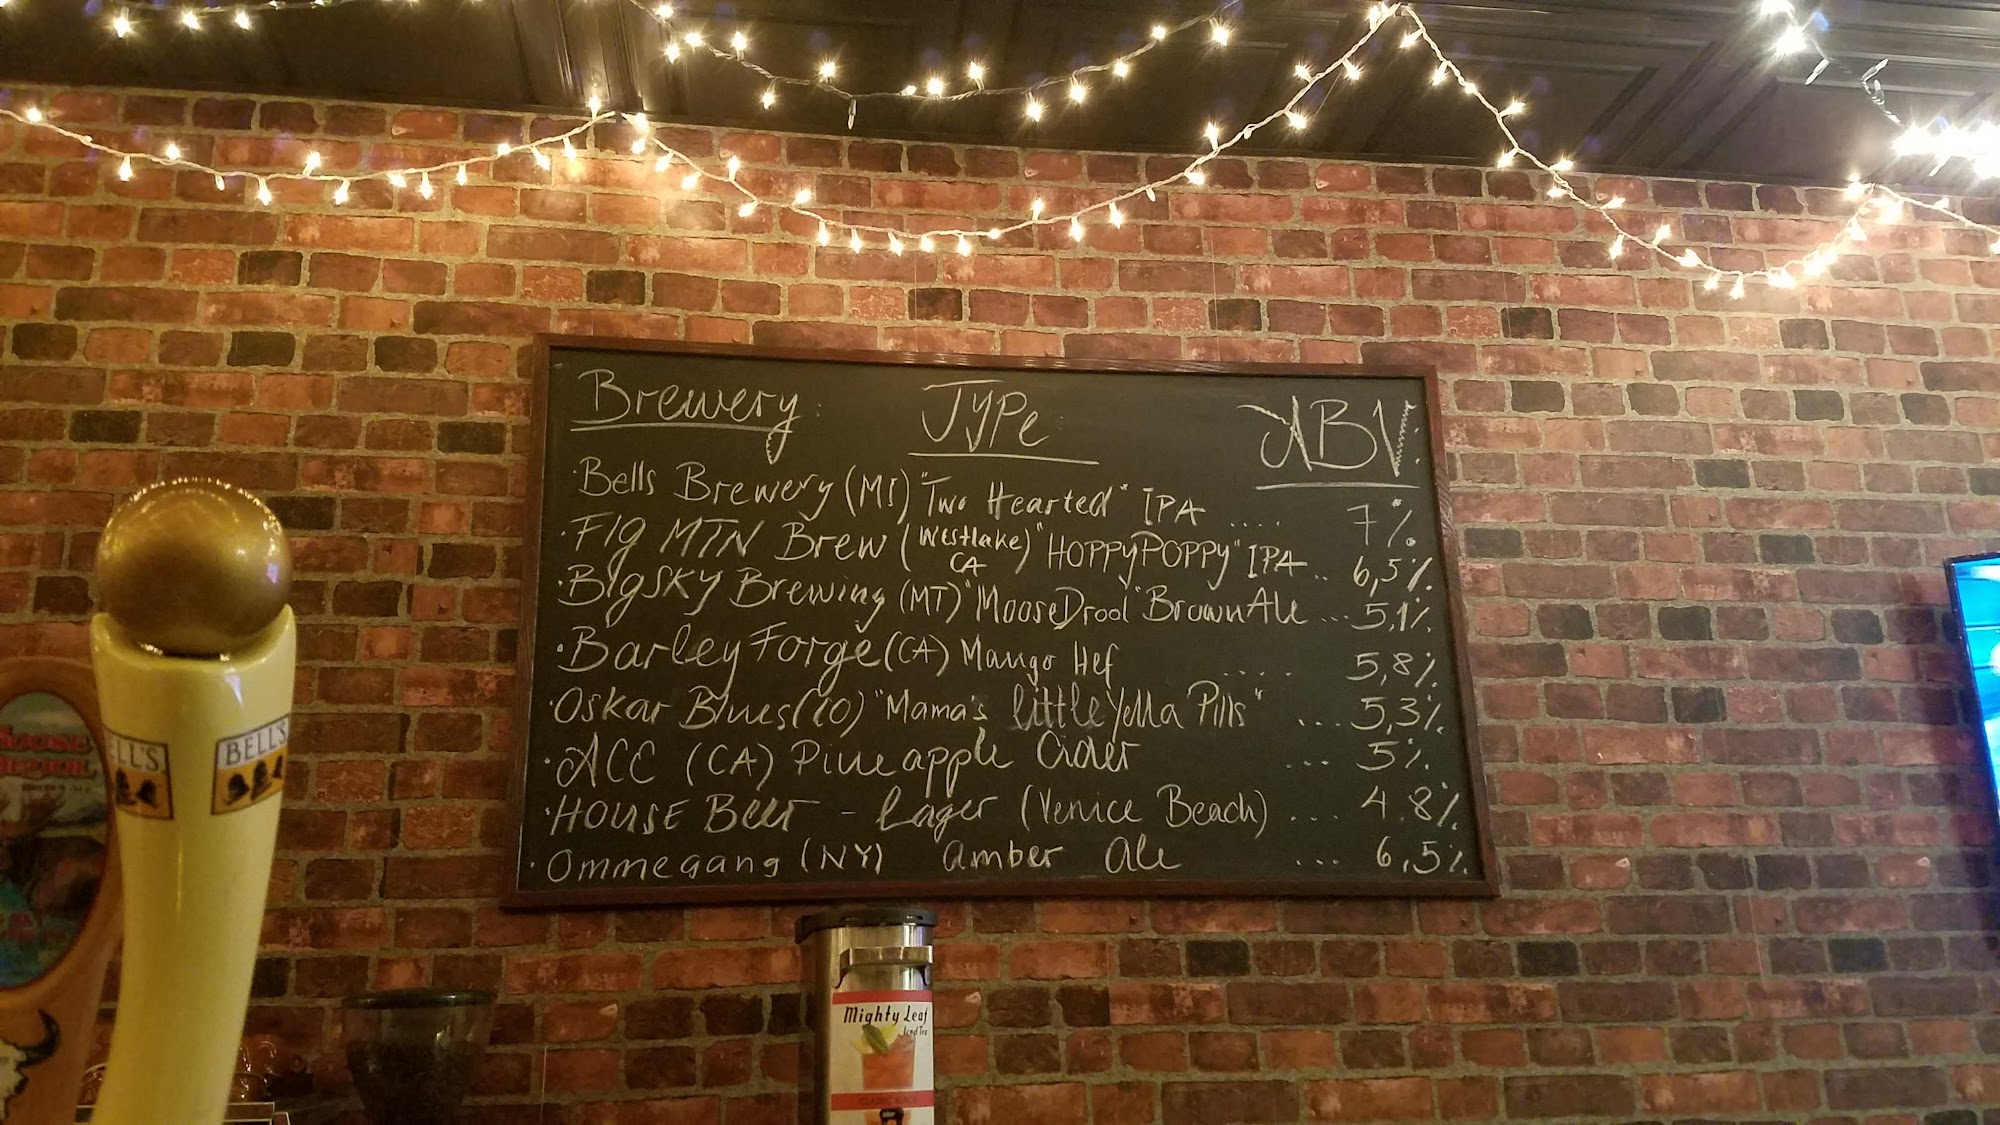 Brewery: Type: ABV.
· Bells Brewery (MI) "Two Hearted" IPA .... 7%
· FIG MTN Brew (Westlake CA) "HOPPY POPPY" IPA .. 6,5%
· BigSKY Brewing (MT) "Moose Drool" Brown Ale ... 5,1%
· Barley Forge (CA) Mango Hef .... 5,8%
· Oskar Blues (CO) "Mama's little Yella Pills" ... 5,3%
· ACC (CA) Pineapple Cider ... 5%
· HOUSE Beer - Lager (Venice Beach) ... 4.8%
· Ommegang (NY) amber ale ... 6,5%
ELL'S
BELL'S
MOOSE
DROOL
Mighty Leaf
Iced Tea
CLASSIC BLACK